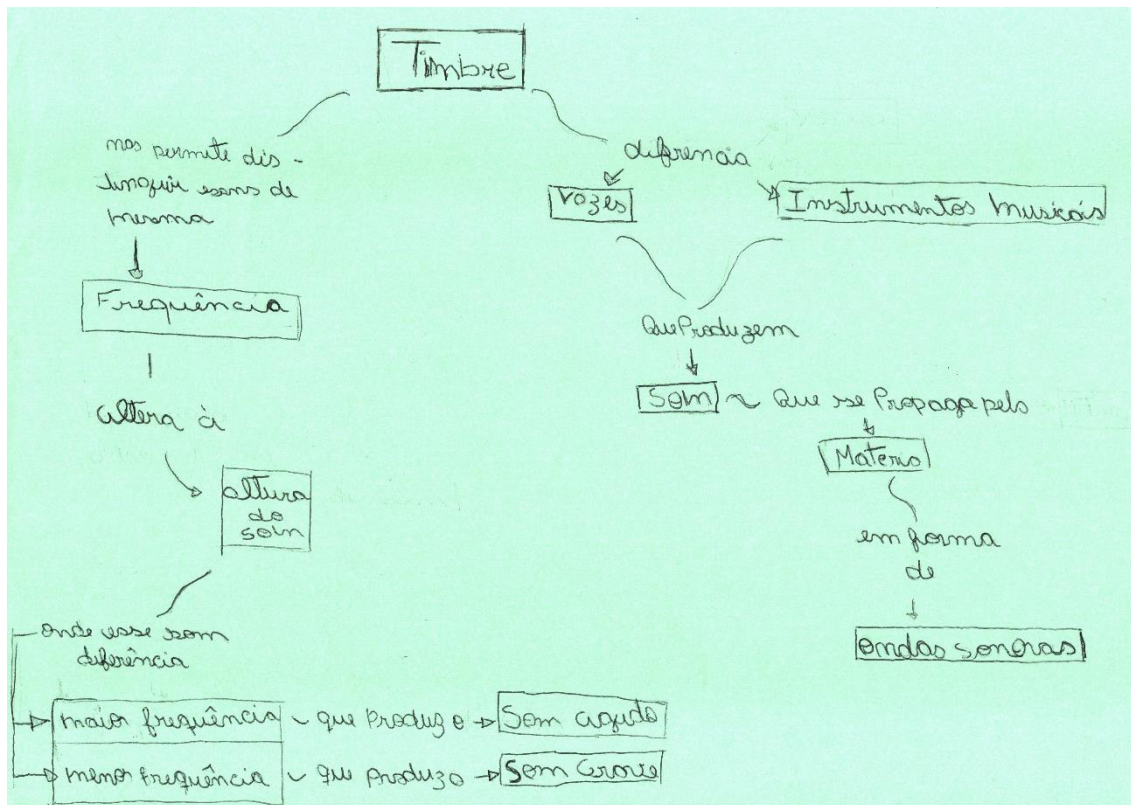 Timbre
nos permite dis-
tinguir sons de
mesma
Frequência
altera à
altura
do
som
onde esse som
diferência
maior frequência que Produz o Som agudo
menor frequência que produz o Som Grave
diferencia
Vozes
Instrumentos musicais
Que Produzem
Som Que se Propaga pelo
Materio
em forma
de
ondas sonoras